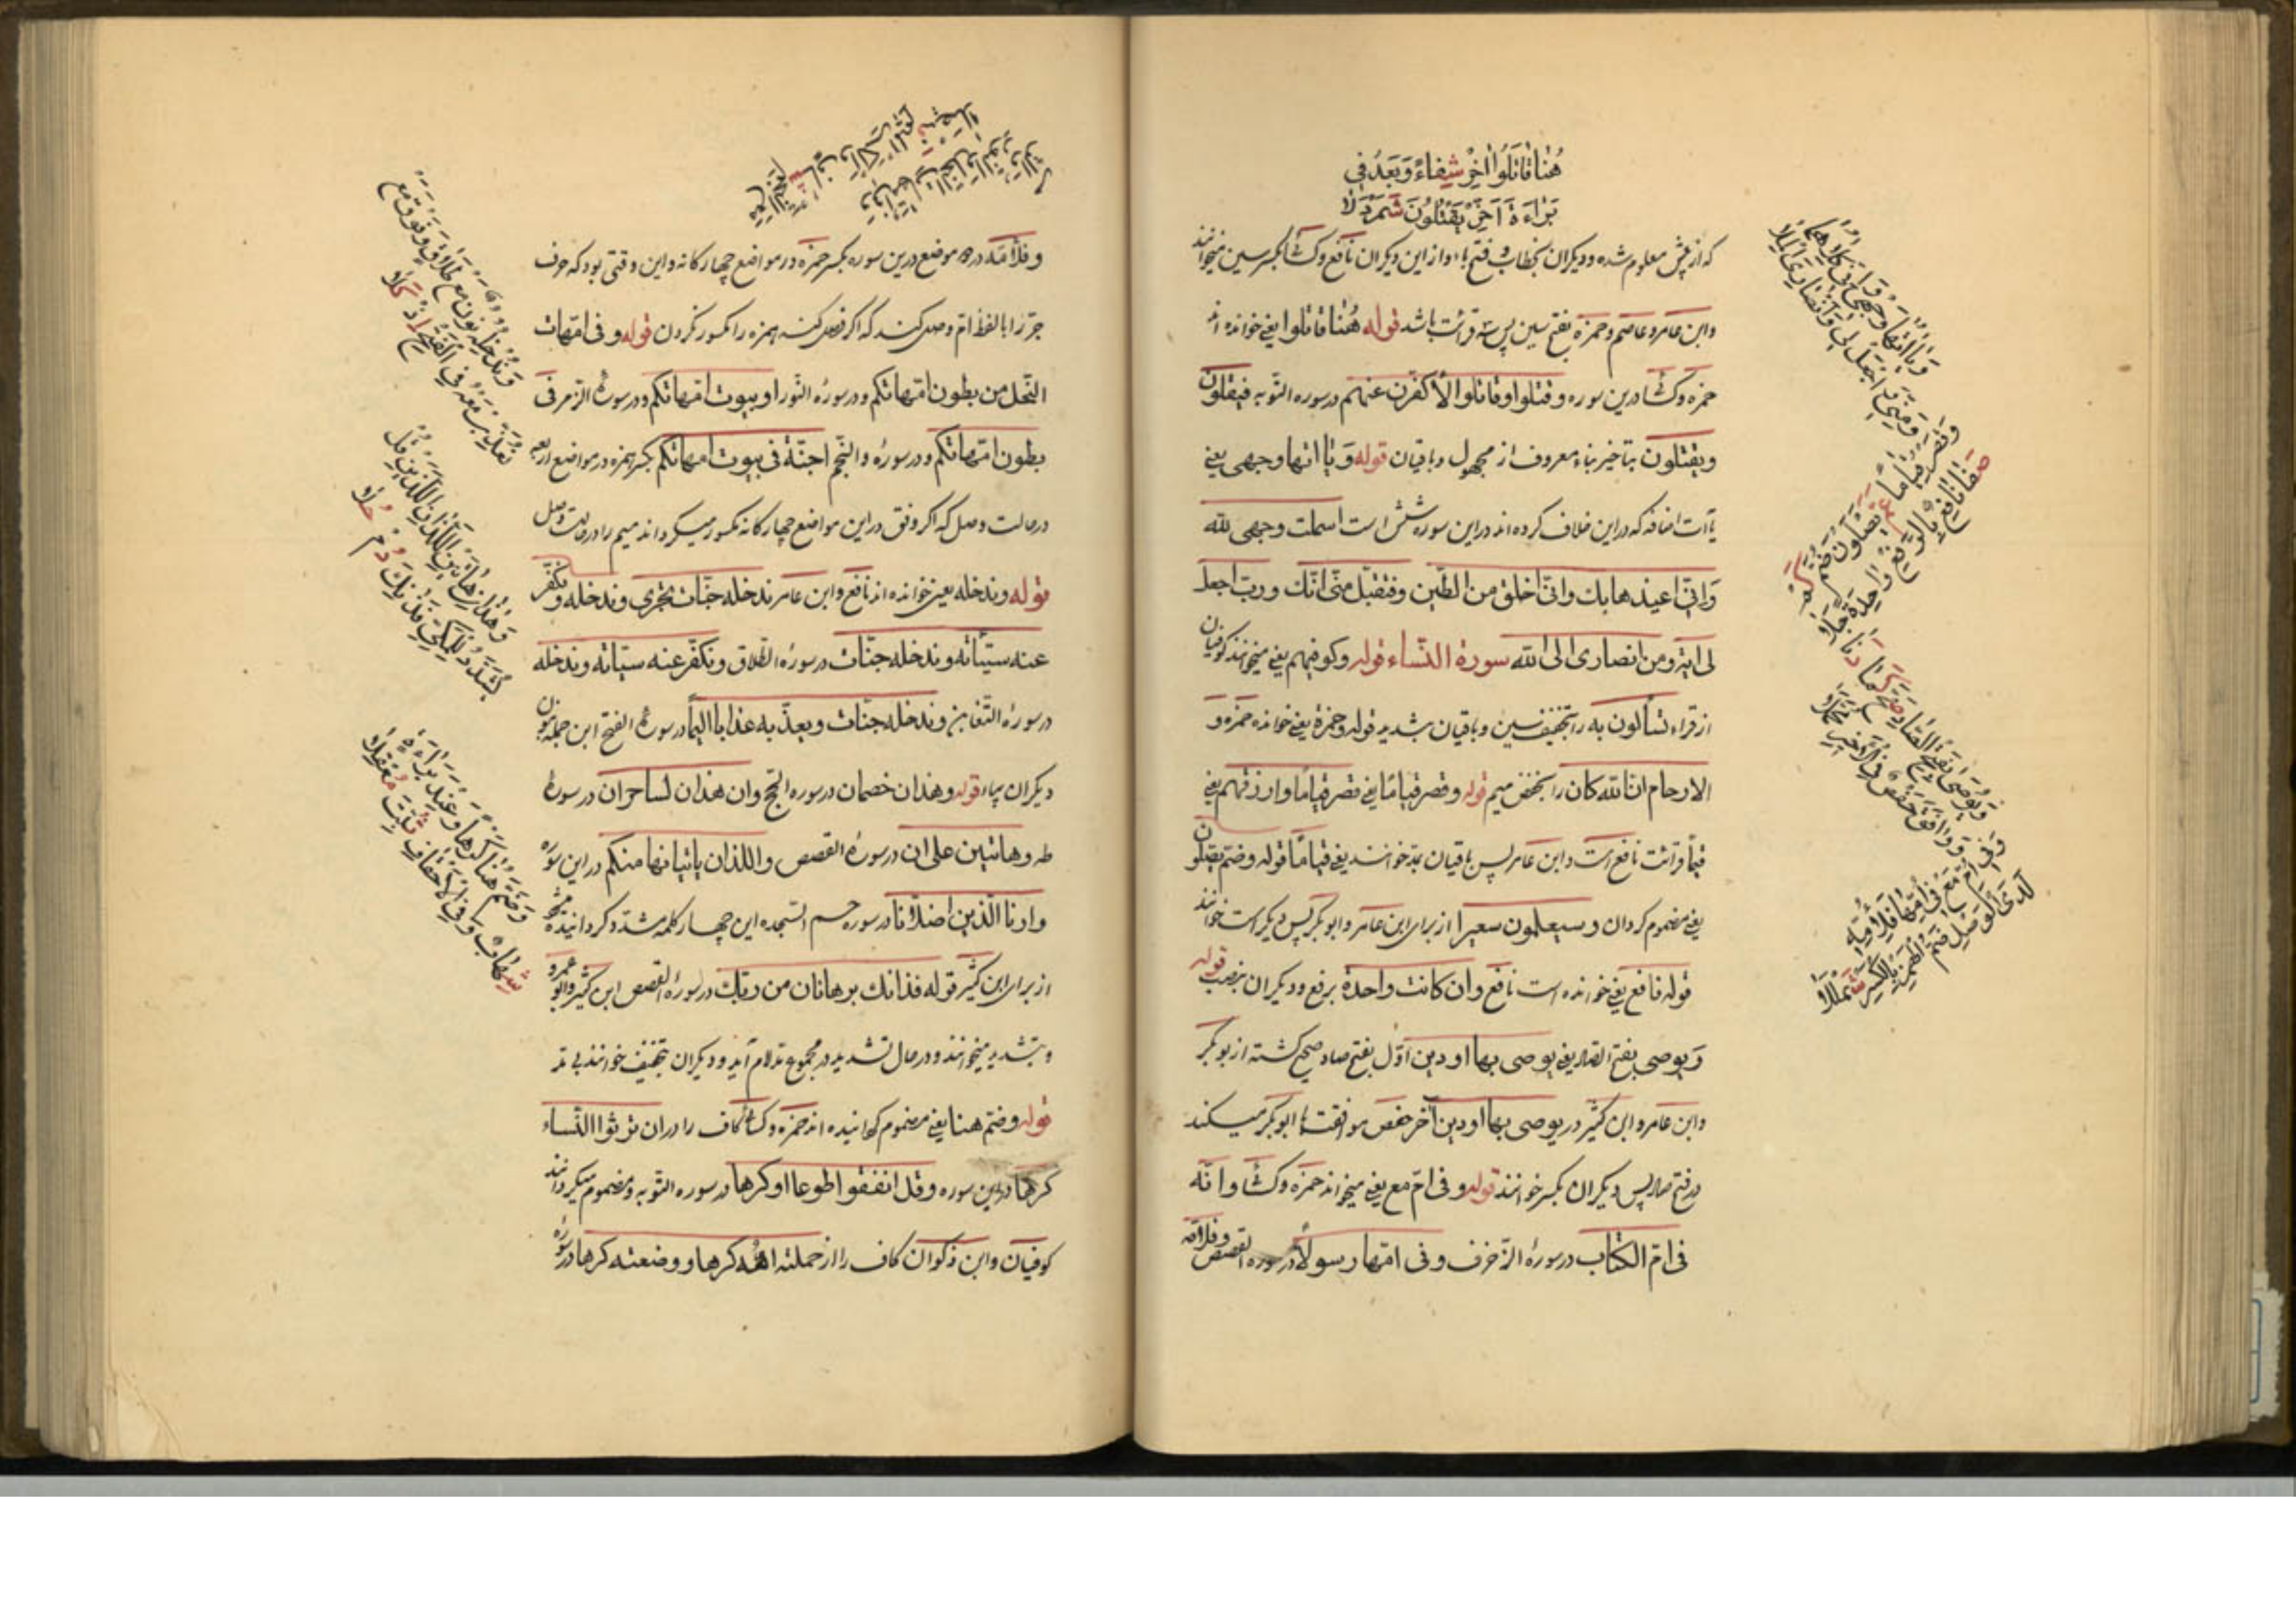 هُنَا قَاتَلُوا أَخِّرْ شِفَاءً وَبَعْدُ فِي
بَرَاءَةَ أَخِّرْ يَقْتُلُونَ شَمَرْدَلَا
که از پیش معلوم شده و دیگران بخطاب و فتح باء و از این دیگران نافع و کسائی بکسر سین میخوانند
وابن عامر و عاصم و حمزه بفتح سین پس سه قرائت باشد قوله هُنا قاتلوا یعنی خوانده اند
حمزه و کسا درین سوره وقتلوا وقاتلوا لأكفرن عنهم در سوره التوبه فيقتلون
ويقتلون بتاخیر بناء معروف از مجهول و باقیان قوله وَيا اتها وجهی یعنی
یاآت اضافه که در این خلاف کرده اند در این سوره شش است اسلمت وجهی لله
وَانّى اعيذها بك وانّى اخلق من الطّين وفتقبّل منّى انّك وربّ اجعل
لى اية ومن انصارى الى الله سورة النساء قوله وکوفیهم یعنی میخوانند کوفیان
از قراء تسألون به را بتخفیف سین و باقیان بتشدید قوله وحمزة یعنی خوانده حمزه و
الارحام ان الله كان را بخفض میم قوله وقصر قيامًا یعنی قصر قيامًا وارزقهم یعنی
قیما قرائت نافع است و ابن عامر پس باقیان بمد خوانند یعنی قیامًا قوله وضمّ يصلون
یعنی مضموم کردان وسيصلون سعيرا از برای ابن عامر و ابو بکر پس دیگر است خوانند
قوله نافع یعنی خوانده است نافع وان كانت واحدة برفع و دیگران بنصب قوله
وَيوصى بفتح الصاد یعنی يوصى بها اودين اوّل بفتح صاد صحیح کشته از بو بکر
وابن عامر و ابن کثیر در يوصى بها اودين آخر حفص موافقت با ابو بکر میکند
در فتح صاد پس دیگران بکسر خوانند قوله وفى امّ مع یعنی میخواند حمزه و کسا وانّه
فى امّ الكتاب در سورهٔ الزّخرف وفى امّها رسولاً در سوره القصص وفلامّه
وَيَا اتُهَا وَجْهِيَ وَإِنِّي كِلَاهُمَا
وَمِنِّي وَاجْعَلْ لِي وَأَنْصَارِيَ الْمِلَا
وَقَصْرُ قِيَامًا عَمَّ يَصْلَوْنَ ضُمَّ كَمْ
صَفَا نَافِعٌ بِالرَّفْعِ وَاحِدَةٌ جَلَا
وَيُوصَى بِفَتْحِ الصَّادِ صَحَّ كَمَا دَنَا
وَوَافَقَ حَفْصٌ فِي الْأَخِيرِ مُجَمَّلَا
وَفِي أُمِّ مَعْ فِي أُمِّهَا فَلِأُمِّهِ
لَدَى الْوَصْلِ ضَمُّ الْهَمْزِ بِالْكَسْرِ شَمْلَلَا
وفلأمّه در موضع درین سوره بکسر حمزه در مواضع چهارکانه و این وقتی بود که حرف
جرّ را با لفظ امّ وصل کنند که اکر فصل کنند همزه را مکسور نکردن قوله وفى امّهات
النّحل من بطون امّهاتكم و در سورهٔ النّور او بيوت امّهاتكم و در سورهٔ الزّمر فى
بطون امّهاتكم و در سورهٔ والنّجم اجنّة فى بيوت امّهاتكم بکسر همزه در مواضع اربعه
در حالت وصل که اکر وقف در این مواضع چهارکانه مکسور میکرداند میم را در حالت وصل
قوله وندخله یعنی خوانده اند نافع و ابن عامر ندخله جنّات تجرى وندخله و نكفّر
عنه سيّئاته وندخله جنّات در سورهٔ الطّلاق ونكفّر عنه سيّئاته وندخله
در سورهٔ التّغابن وندخله جنّات ويعذّبه عذابا اليمًا در سورهٔ الفتح این جمله بنون
دیگران بیاء قوله وهذان خصمان در سوره الحجّ وان هذان لساحران در سورهٔ
طه وهاتين على ان در سورهٔ القصص واللذان ياتيانها منكم در این سوره
وارنا الّذين اضلّانا در سوره حم السّجده این چهار کلمه مشدّد کردانیده
از برای ابن کثیر قوله فذانك برهانان من ربّك در سورهٔ القصص ابن کثیر و ابو عمرو
و بتشدید میخوانند و در حال تشدید در مجموع مدّ لازم آید و دیگران بتخفیف خوانند بی مدّ
قوله وضمّ هنا یعنی مضموم کردانیده اند حمزه و کسا کاف را در ان ترثوا النّساء
كرها در این سوره وقل انفقوا طوعا او كرها در سوره التوبه و مضموم میکردانند
کوفیان و ابن ذکوان کاف را از حملته امّه كرها ووضعته كرها در سورهٔ
وَنُدْخِلْهُ نُونٌ مَعْ طَلَاقٍ وَفَوْقُ مَعْ
نُكَفِّرْ نُعَذِّبْ مَعْهُ فِي الْفَتْحِ إِذْ كَلَا
وَهَذَانِ هَاتَيْنِ اللَّذَانِ اللَّذَيْنِ قُلْ
يُشَدَّدُ لِلْمَكِّي فَذَانِكَ دُمْ حُلَا
وَضَمَّ هُنَا كَرْهًا وَعِنْدَ بَرَاءَةٍ
شِهَابٌ وَفِي الْأَحْقَافِ ثُبِّتَ مَعْقِلَا